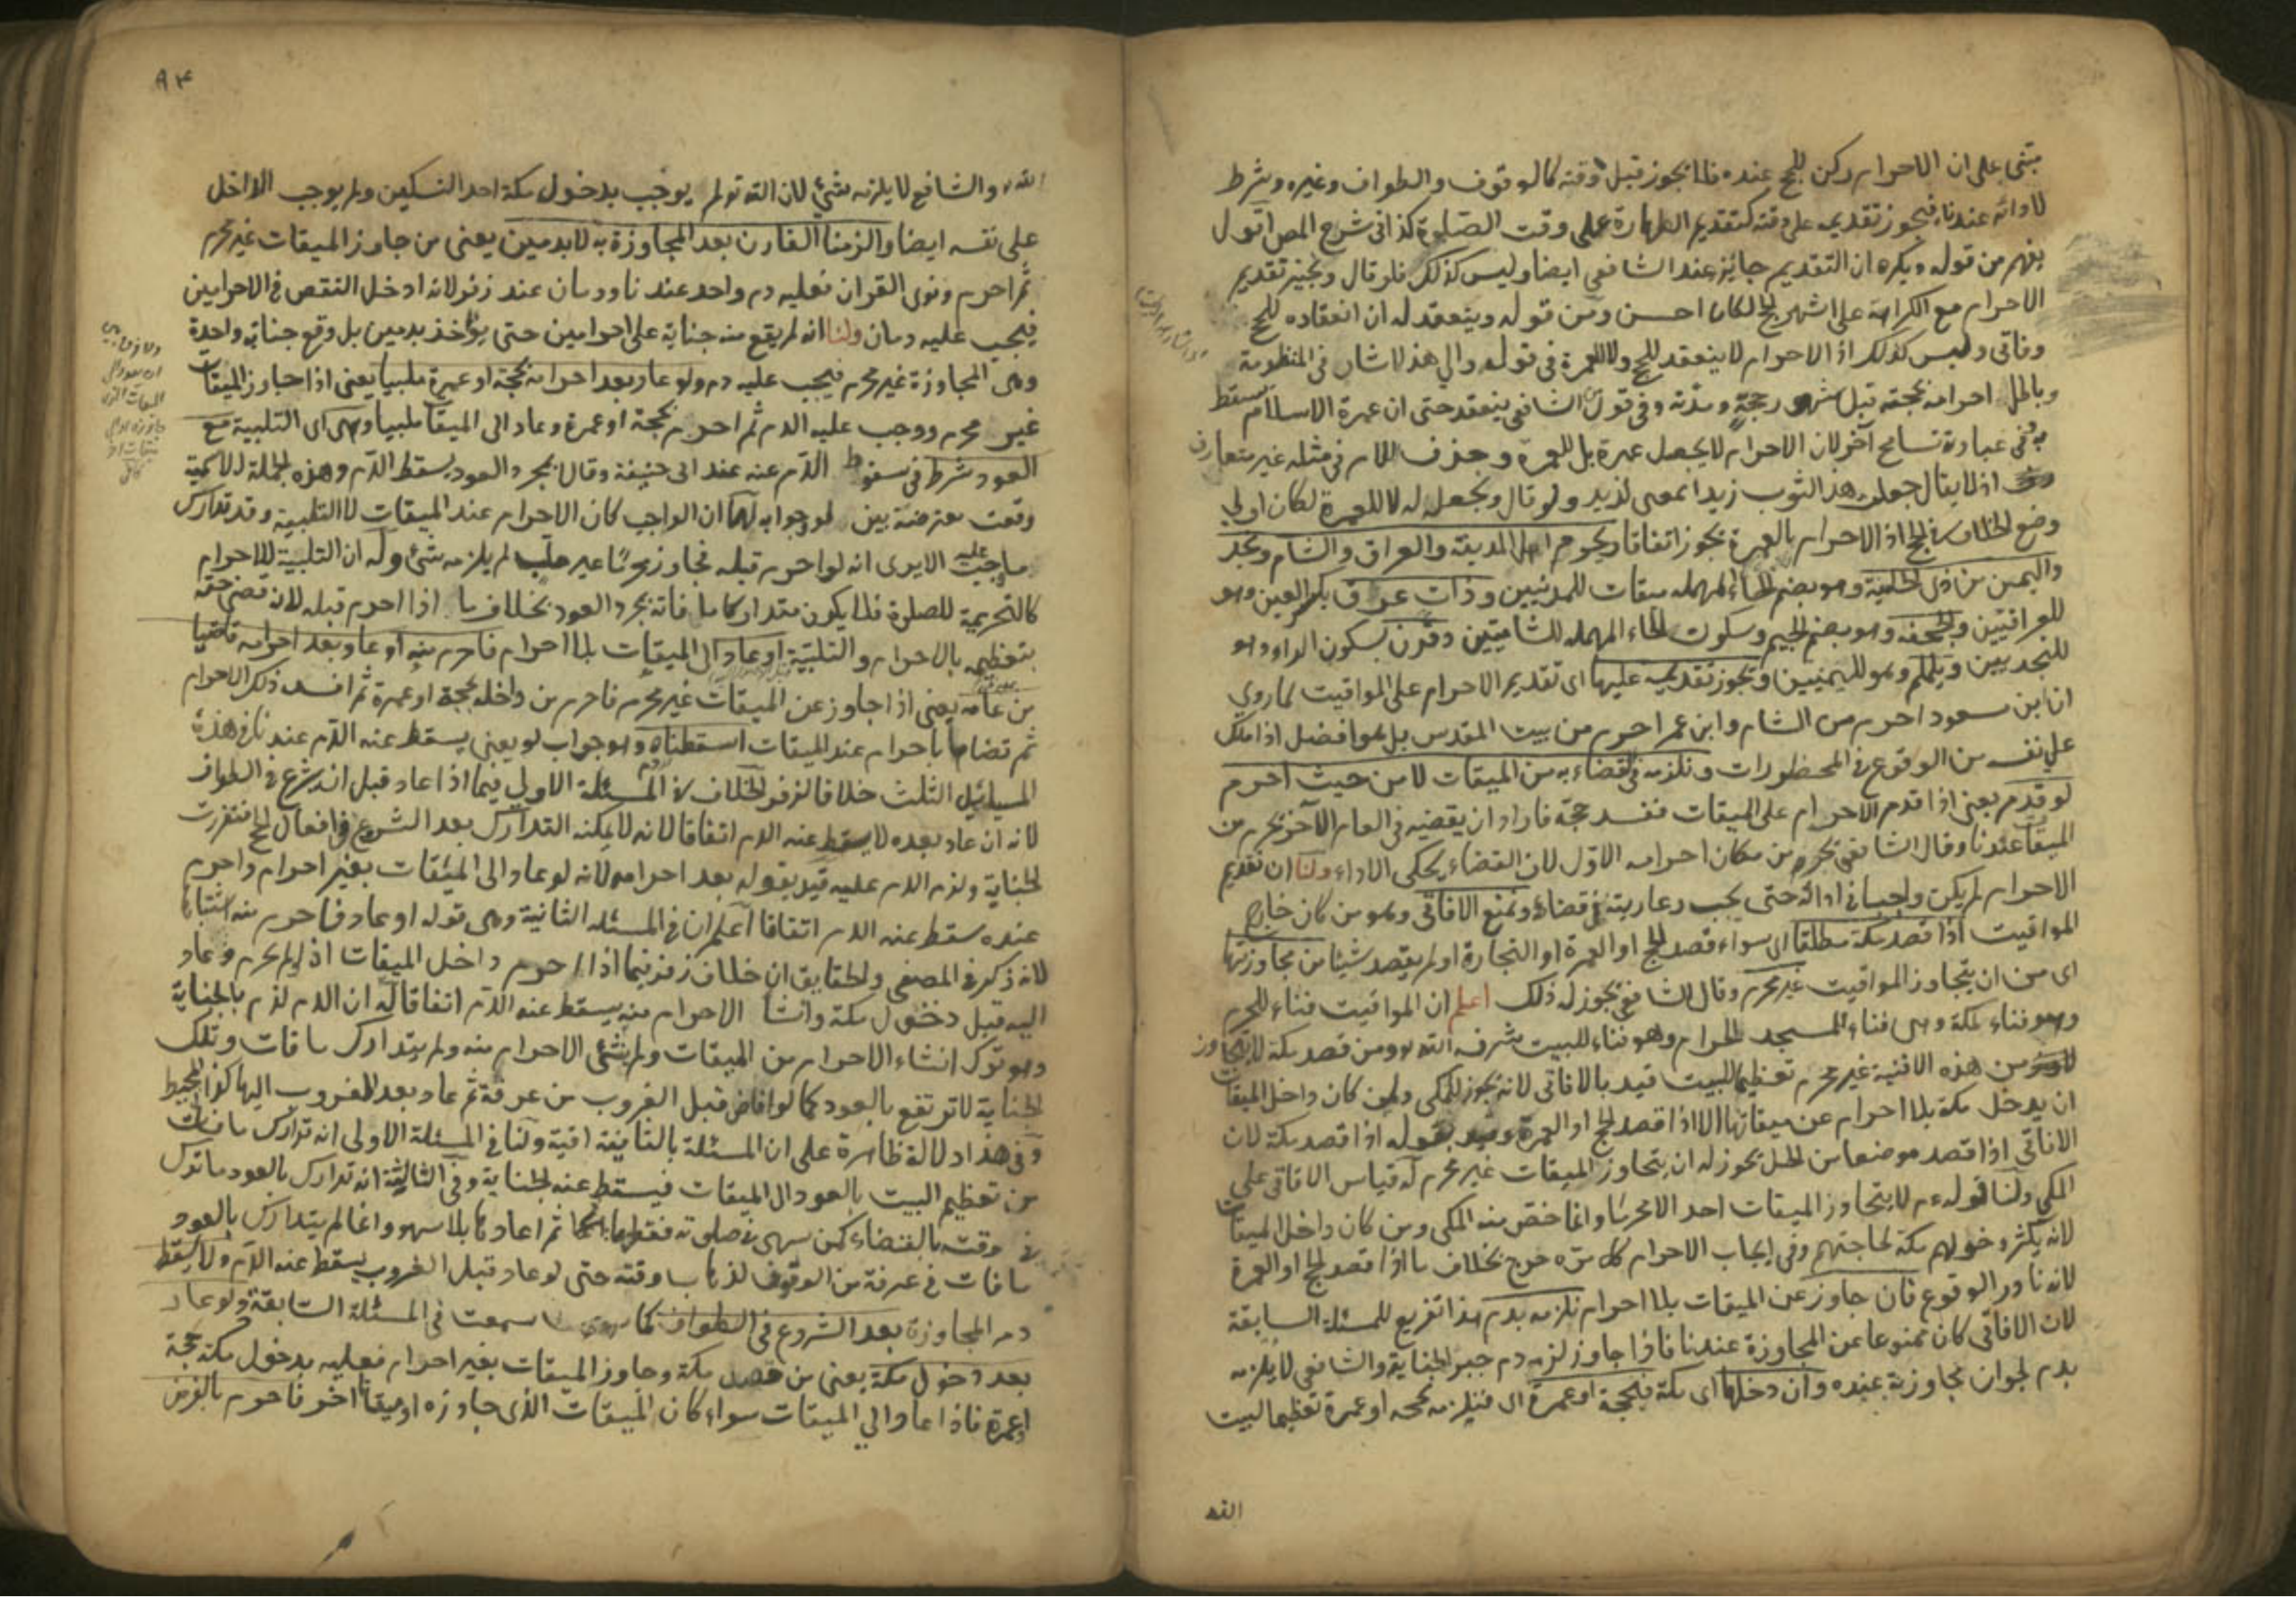 مبنى على ان الاحرام ركن للحج عنده فلا يجوز قبل وقته كالوقوف والطواف وغيره وشرط
لادائه عندنا فيجوز تقديمه على وقته كتقديم الطهارة على وقت الصلوة كذا في شرح المص اقول
يفهم من قوله ويكره ان التقديم جايز عند الشافعى ايضا وليس كذلك فلو قال ونجيز تقديم
الاحرام مع الكراهة على اشهر الحج لكان احسن ومن قوله وينعقد له ان انعقاده للحج
وفاقى وليس كذلك اذ الاحرام لا ينعقد للحج ولا للعمرة فى قوله والى هذا اشار فى المنظومة
وباطل احرامه بحجته قبل شهور حجه ومدته وفى قول الشافعى ينعقد حتى ان عمرة الاسلام تسقط
به ففى عبارة تسامح آخر لان الاحرام لا يجعل عمرة بل للعمرة وحذف اللام فى مثله غير متعارف
اذ لا يقال جعلت هذا الثوب زيدا بمعنى لزيد ولو قال ويجعله له لا للعمرة لكان اولى
وضع الخلاف فى الحج اذ الاحرام بالعمرة يجوز اتفاقا ويحرم اهل المدينة والعراق والشام ونجد
واليمن من ذى الحليفة وهو بضم الحاء المهملة ميقات للمدنيين وذات عرق بكسر العين وهو
للعراقيين والجحفة وهو بضم الجيم وسكون الحاء المهملة للشاميين وقرن بسكون الراء وهو
للنجديين ويلملم وهو لليمنيين ويجوز تقديمه عليها اى تقديم الاحرام على المواقيت لما روى
ان ابن مسعود احرم من الشام وابن عمر احرم من بيت المقدس بل هو افضل اذا ملك
على نفسه من الوقوع فى المحظورات ونلزمه فى قضاءه من الميقات لا من حيث احرم
لو قدم يعنى اذا قدم الاحرام على الميقات ففسد حجه فاراد ان يقضيه فى العام الآخر يحرم من
الميقات عندنا وقال الشافعى يحرم من مكان احرامه الاول لان القضاء يحكى الاداء ولنا ان تقديم
الاحرام لم يكن واجبا فى ادائه حتى يجب رعايته فى قضائه ونمنع الافاقى وهو من كان خارج
المواقيت اذا قصد مكة مطلقا اى سواء قصد الحج او العمرة او التجارة او لم يقصد شيئا من مجاوزتها
اى من ان يتجاوز المواقيت غير محرم وقال الشافعى يجوز له ذلك اعلم ان المواقيت فناء للحرم
وهو فناء لمكة وهى فناء المسجد الحرام وهو فناء للبيت شرفه الله ومن قصد مكة لا يتجاوز
من هذه الافنية غير محرم تعظيما للبيت قيد بالافاقى لانه يجوز للمكى ولمن كان داخل الميقات
ان يدخل مكة بلا احرام عن ميقاتها الا اذا قصد الحج او العمرة وقيد بقوله اذا قصد مكة لان
الافاقى اذا قصد موضعا من الحل يجوز له ان يتجاوز الميقات غير محرم له قياس الافاقى على
المكى ولنا قوله عم لا يتجاوز الميقات احد الا محرما وانما خص منه المكى ومن كان داخل الميقات
لانه يكثر دخولهم مكة لحاجتهم وفى ايجاب الاحرام كل مرة حرج بخلاف ما اذا قصد الحج او العمرة
لانه نادر الوقوع فان جاوز عن الميقات بلا احرام نلزمه بدم هذا تفريع للمسئلة السابقة
لان الافاقى كان ممنوعا عن المجاوزة عندنا فاذا جاوز لزمه دم جبر الجناية والشافعى لا يلزمه
بدم لجواز مجاوزته عنده وان دخلها اى مكة فبحجة او عمرة اى فيلزمه بحجة او عمرة تعظيما لبيت
الله
٩٤
الله والشافعى لا يلزمه شئ لان الله تع لم يوجب بدخول مكة احد النسكين ولم يوجب الداخل
على نفسه ايضا والزمنا القارن بعد المجاوزة به لا بدمين يعنى من جاوز الميقات غير محرم
ثم احرم ونوى القران فعليه دم واحد عندنا ودمان عند زفر لانه ادخل النقص فى الاحرامين
فيجب عليه دمان ولنا انه لم يقع منه جناية على احرامين حتى يؤاخذ بدمين بل وقع جنايته واحدة
وهى المجاوزة غير محرم فيجب عليه دم ولو عاد بعد احرامه بحجة او عمرة ملبيا يعنى اذا جاوز الميقات
غير محرم ووجب عليه الدم ثم احرم بحجة او عمرة وعاد الى الميقات ملبيا وهى اى التلبية مع
العود شرط فى سقوط الدم عنه عند ابى حنيفة وقالا بمجرد العود يسقط الدم وهذه الجملة الاسمية
وقعت معترضة بين لو وجوابه لهما ان الواجب كان الاحرام عند الميقات لا التلبية وقد تدارك
ما وجبت عليه الا يرى انه لو احرم قبله فجاوز محرما غير ملب لم يلزمه شئ وله ان التلبية للاحرام
كالتحريمة للصلوة فلا يكون متداركا ما فاته بمجرد العود بخلاف ما اذا احرم قبله لانه قضى حقه
بتعظيمه بالاحرام والتلبية او عاد الى الميقات بلا احرام فاحرم منه او عاد بعد احرامه قاضيا
من عامه يعنى اذا جاوز عن الميقات غير محرم فاحرم من داخله بحجة او عمرة ثم افسد ذلك الاحرام
ثم قضاها باحرام عند الميقات اسقطناه وهو جواب لو يعنى يسقط عنه الدم عندنا فى هذه
المسائل الثلث خلافا لزفر الخلاف فى المسئلة الاولى فيما اذا عاد قبل ان شرع فى الطواف
لانه ان عاد بعده لا يسقط عنه الدم اتفاقا لانه لا يمكنه التدارك بعد الشروع فى افعال الحج فتقررت
الجناية ولزم الدم عليه قيد بقوله بعد احرامه لانه لو عاد الى الميقات بغير احرام واحرم
عنده سقط عنه الدم اتفاقا اعلم ان فى المسئلة الثانية وهى قوله او عاد فاحرم منه اشتباها
لانه ذكر فى المصفى والحقايق ان خلاف زفر فيما اذا احرم داخل الميقات اذ لو لم يحرم وعاد
اليه قبل دخول مكة وانشا الاحرام منه يسقط عنه الدم اتفاقا له ان الدم لزم بالجناية
وهو ترك انشاء الاحرام من الميقات ولم ينشئ الاحرام منه ولم يتدارك ما فات وتلك
الجناية لا ترتفع بالعود كما لو افاض قبل الغروب من عرفة ثم عاد بعد الغروب اليها كذا فى المحيط
وفى هذا دلالة ظاهرة على ان المسئلة الثانية وفاقية ولنا فى المسئلة الاولى انه تدارك ما فات
من تعظيم البيت بالعود الى الميقات فيسقط عنه الجناية وفى الثالثة انه تدارك بالعود ما ترك
فى وقته بالقضاء كمن سهى فى صلوته فقطعها ثم اعادها بلا سهو وانما لم يتدارك بالعود
ما فات فى عرفة من الوقوف لذهاب وقته حتى لو عاد قبل الغروب يسقط عنه الدم ولا يسقط
دم المجاوزة بعد الشروع فى الطواف كما سمعت فى المسئلة السابقة ولو عاد
بعد دخول مكة يعنى من قصد مكة وجاوز الميقات بغير احرام فعليه بدخول مكة حجة
او عمرة فاذا عاد الى الميقات سواء كان الميقات الذى جاوزه او ميقاتا اخر فاحرم بالفرض